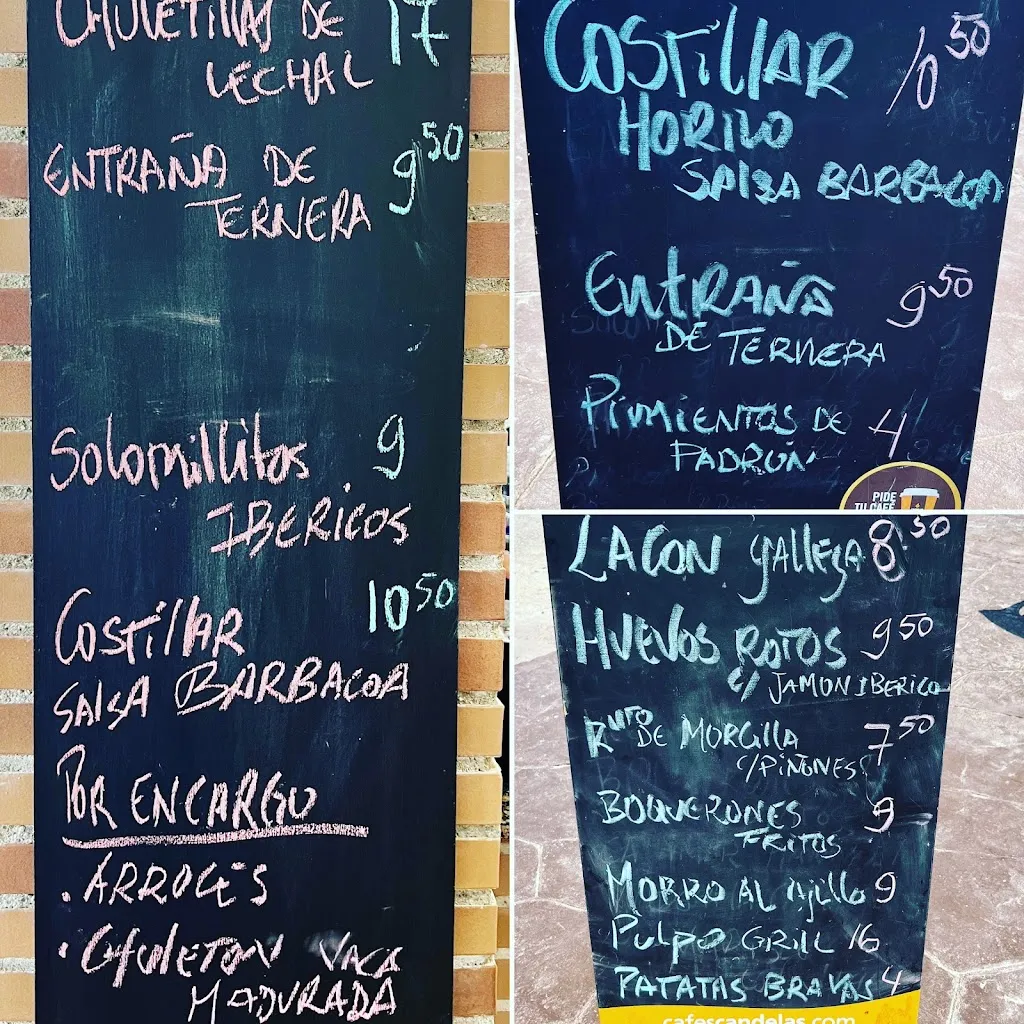 CHULETILLAS DE 17
LECHAL
ENTRAÑA DE 9 50
TERNERA
SOLOMILLITOS 9
IBERICOS
COSTILLAR 10 50
SALSA BARBACOA
POR ENCARGO
. ARROCES
. CHULETON VACA
MADURADA
COSTILLAR 10 50
HORNO
SALSA BARBACOA
ENTRAÑA 9 50
DE TERNERA
PIMIENTOS DE 4
PADRÓN
PIDE
TU CAFÉ
LACON GALLEGA 8'50
HUEVOS ROTOS 9 50
C/ JAMON IBERICO
DE MORCILLA 7 50
C/PIÑONES
BOQUERONES 9
FRITOS
MORRO AL AJILLO 9
PULPO GRILL 16
PATATAS BRAVAS 4
cafescandelas.com